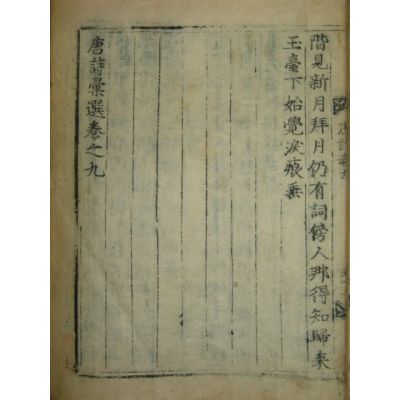 階見新月拜月仍有詞傍人那得知歸来
玉臺下始覺淚痕垂
唐詩彙選卷之九